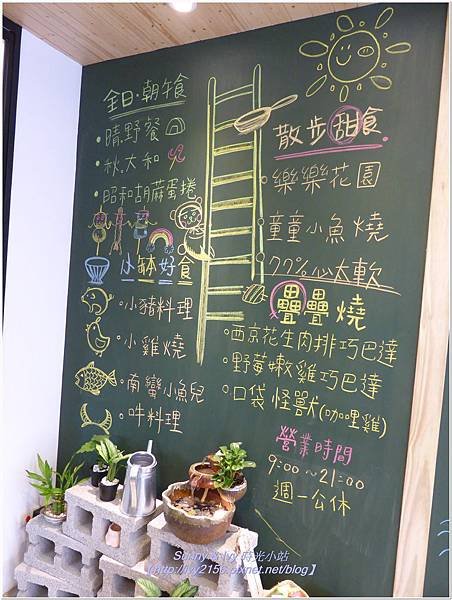 全日·朝午食
·晴野餐
·秋大和
·昭和胡蔴蛋捲
小缽好食
·小豬料理
·小雞燒
·南蠻小魚兒
·吽料理
散步甜食
樂樂花園
童童小魚燒
77%心太軟
疊疊燒
西京花生肉排巧巴達
·野莓嫩雞巧巴達
·口袋怪獸(咖哩雞)
營業時間
9:00~21:00
週一公休
Sunny & Ivy 時光小站
【http://ivy2150.pixnet.net/blog】